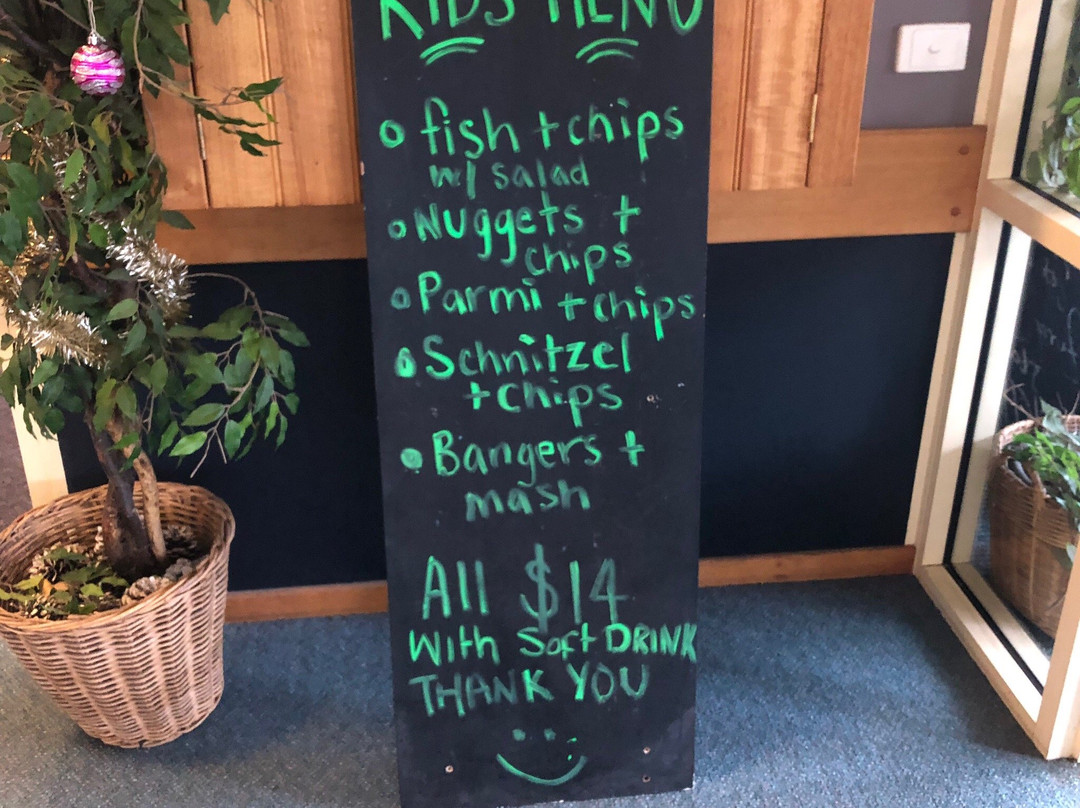 KIDS MENU
fish + chips
w/ salad
Nuggets +
chips
Parmi + chips
Schnitzel
+ chips
Bangers +
mash
All $14
With Soft DRINK
THANK YOU